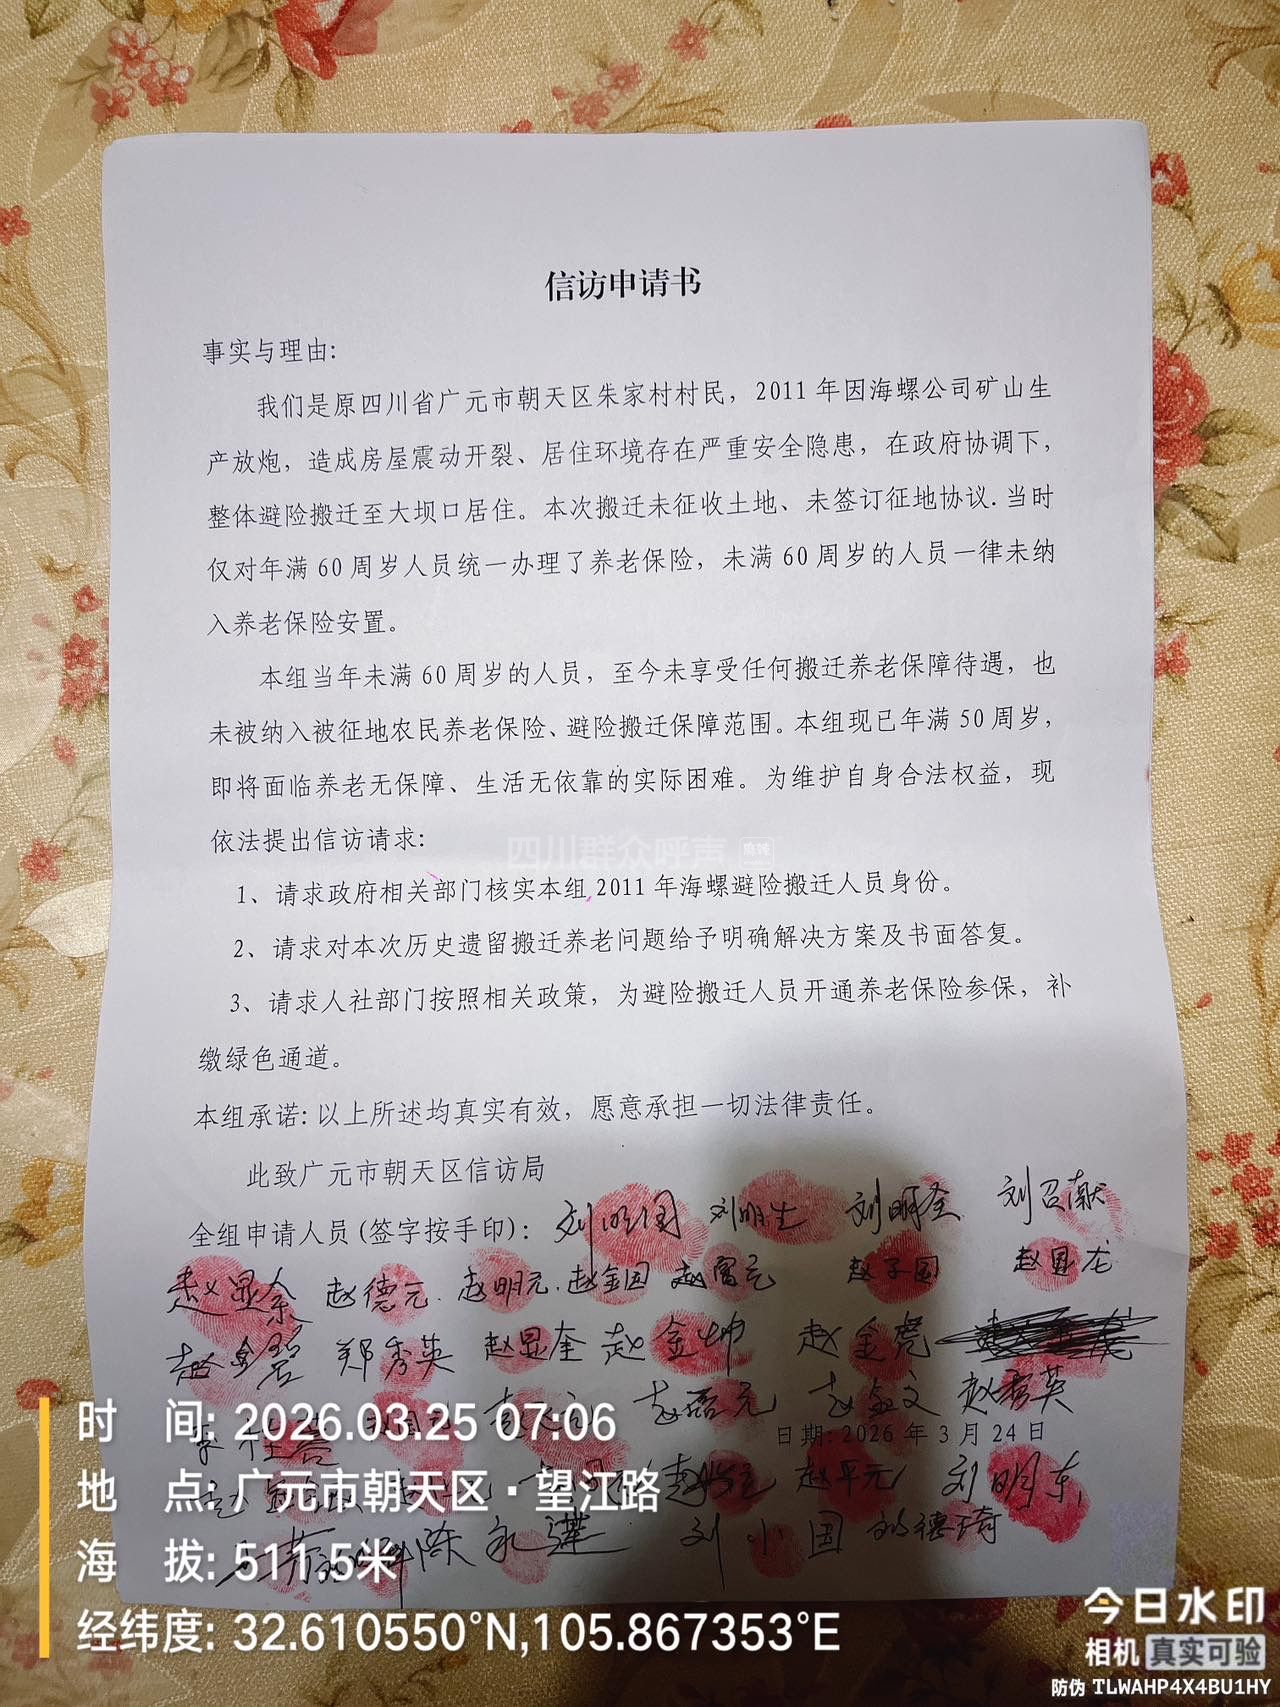 信访申请书
事实与理由:
我们是原四川省广元市朝天区朱家村村民，2011年因海螺公司矿山生
产放炮，造成房屋震动开裂、居住环境存在严重安全隐患，在政府协调下，
整体避险搬迁至大坝口居住。本次搬迁未征收土地、未签订征地协议.当时
仅对年满60周岁人员统一办理了养老保险，未满60周岁的人员一律未纳
入养老保险安置。
本组当年未满60周岁的人员，至今未享受任何搬迁养老保障待遇，也
未被纳入被征地农民养老保险、避险搬迁保障范围。本组现已年满50周岁，
即将面临养老无保障、生活无依靠的实际困难。为维护自身合法权益，现
依法提出信访请求:
四川群众呼声 麻辣
1、请求政府相关部门核实本组2011年海螺避险搬迁人员身份。
2、请求对本次历史遗留搬迁养老问题给予明确解决方案及书面答复。
3、请求人社部门按照相关政策，为避险搬迁人员开通养老保险参保，补
缴绿色通道。
本组承诺:以上所述均真实有效，愿意承担一切法律责任。
此致广元市朝天区信访局
全组申请人员(签字按手印): 刘明国 刘明生 刘明全 刘召献
赵显余 赵德元 赵明元 赵金国 赵富元 赵子国 赵显龙
赵金 郑秀英 赵显奎 赵金坤 赵金虎
赵磊元 赵金文 赵秀英
日期:2026年3月24日
赵平元 刘明东
陈 刘小国 德琦
时 间: 2026.03.25 07:06
地 点: 广元市朝天区·望江路
海 拔: 511.5米
经纬度: 32.610550°N,105.867353°E
今日水印
相机 真实可验
防伪 TLWAHP4X4BU1HY